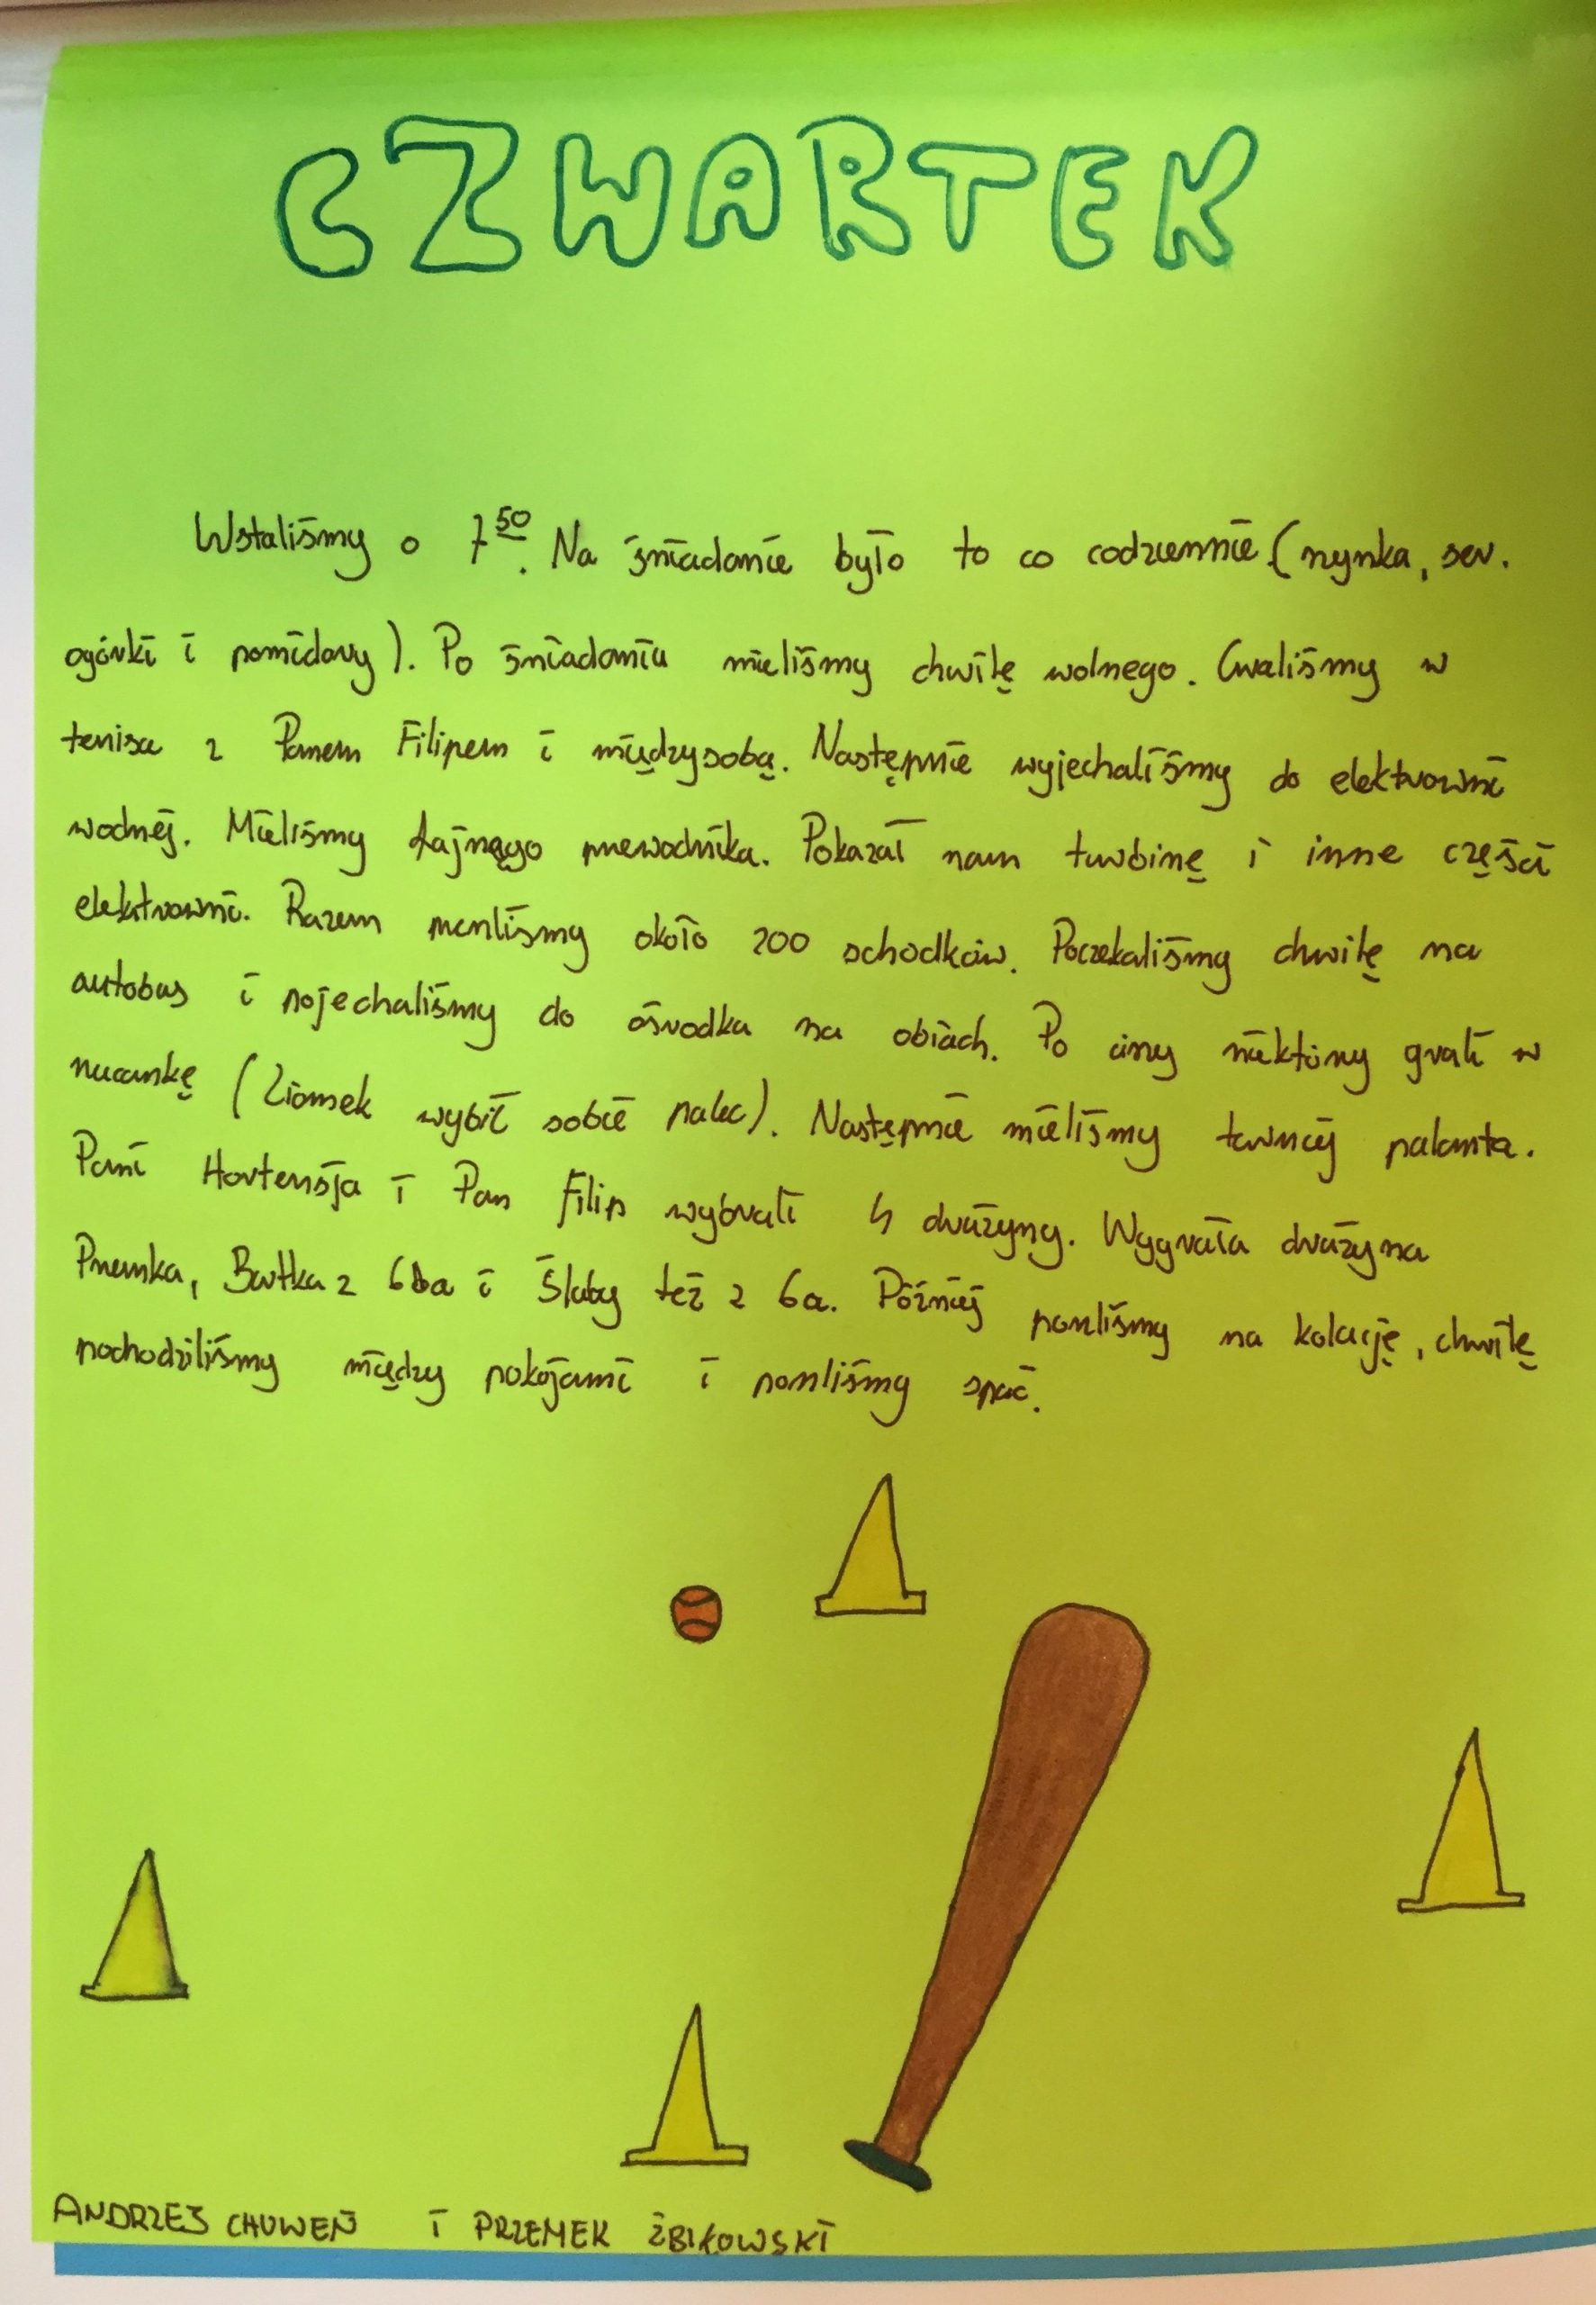 CZWARTEK
Wstaliśmy o 7⁵⁰. Na śniadanie było to co codziennie (szynka, ser.
ogórki i pomidory). Po śniadaniu mieliśmy chwilę wolnego. Graliśmy w
tenisa z Panem Filipem i międzysobą. Następnie wyjechaliśmy do elektrowni
wodnej. Mieliśmy fajnego przewodnika. Pokazał nam turbinę i inne części
elektrowni. Razem przeszliśmy około 200 schodków. Poczekaliśmy chwilę na
autobus i pojechaliśmy do ośrodka na obiad. Po ciszy niektórzy grali w
rzucankę (Ziomek wybił sobie palec). Następnie mieliśmy turniej palanta.
Pani Hortensja i Pan Filip wybrali 4 drużyny. Wygrała drużyna
Przemka, Bartka z 6a i Śluby też z 6a. Później poszliśmy na kolację, chwilę
pochodziliśmy między pokojami i poszliśmy spać.
ANDRZEJ CHUWEŃ I PRZEMEK ŻBIKOWSKI